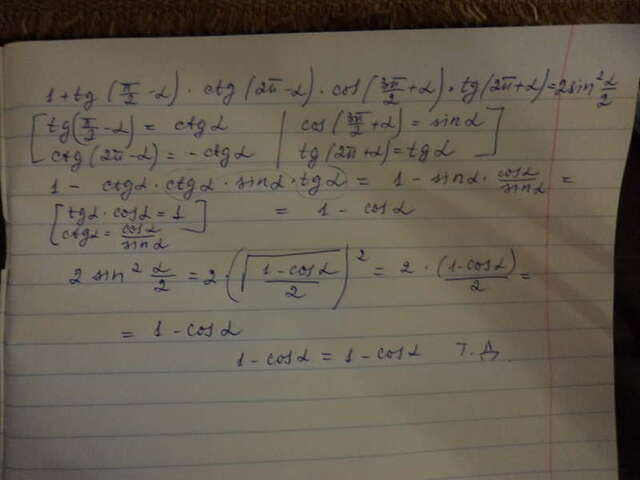 1 + tg (π/2 - α) · ctg (2π - α) · cos (3π/2 + α) · tg (2π + α) = 2 sin² α/2
[ tg(π/2 - α) = ctg α | cos (3π/2 + α) = sin α ]
[ ctg (2π - α) = - ctg α | tg (2π + α) = tg α ]
1 - ctg α · ctg α · sin α · tg α = 1 - sin α · cos α/sin α =
[ tg α · cos α = 1 ] = 1 - cos α
[ ctg α = cos α/sin α ]
2 sin² α/2 = 2 · (√(1 - cos α)/2)² = 2 · (1 - cos α)/2 =
= 1 - cos α
1 - cos α = 1 - cos α т. д.